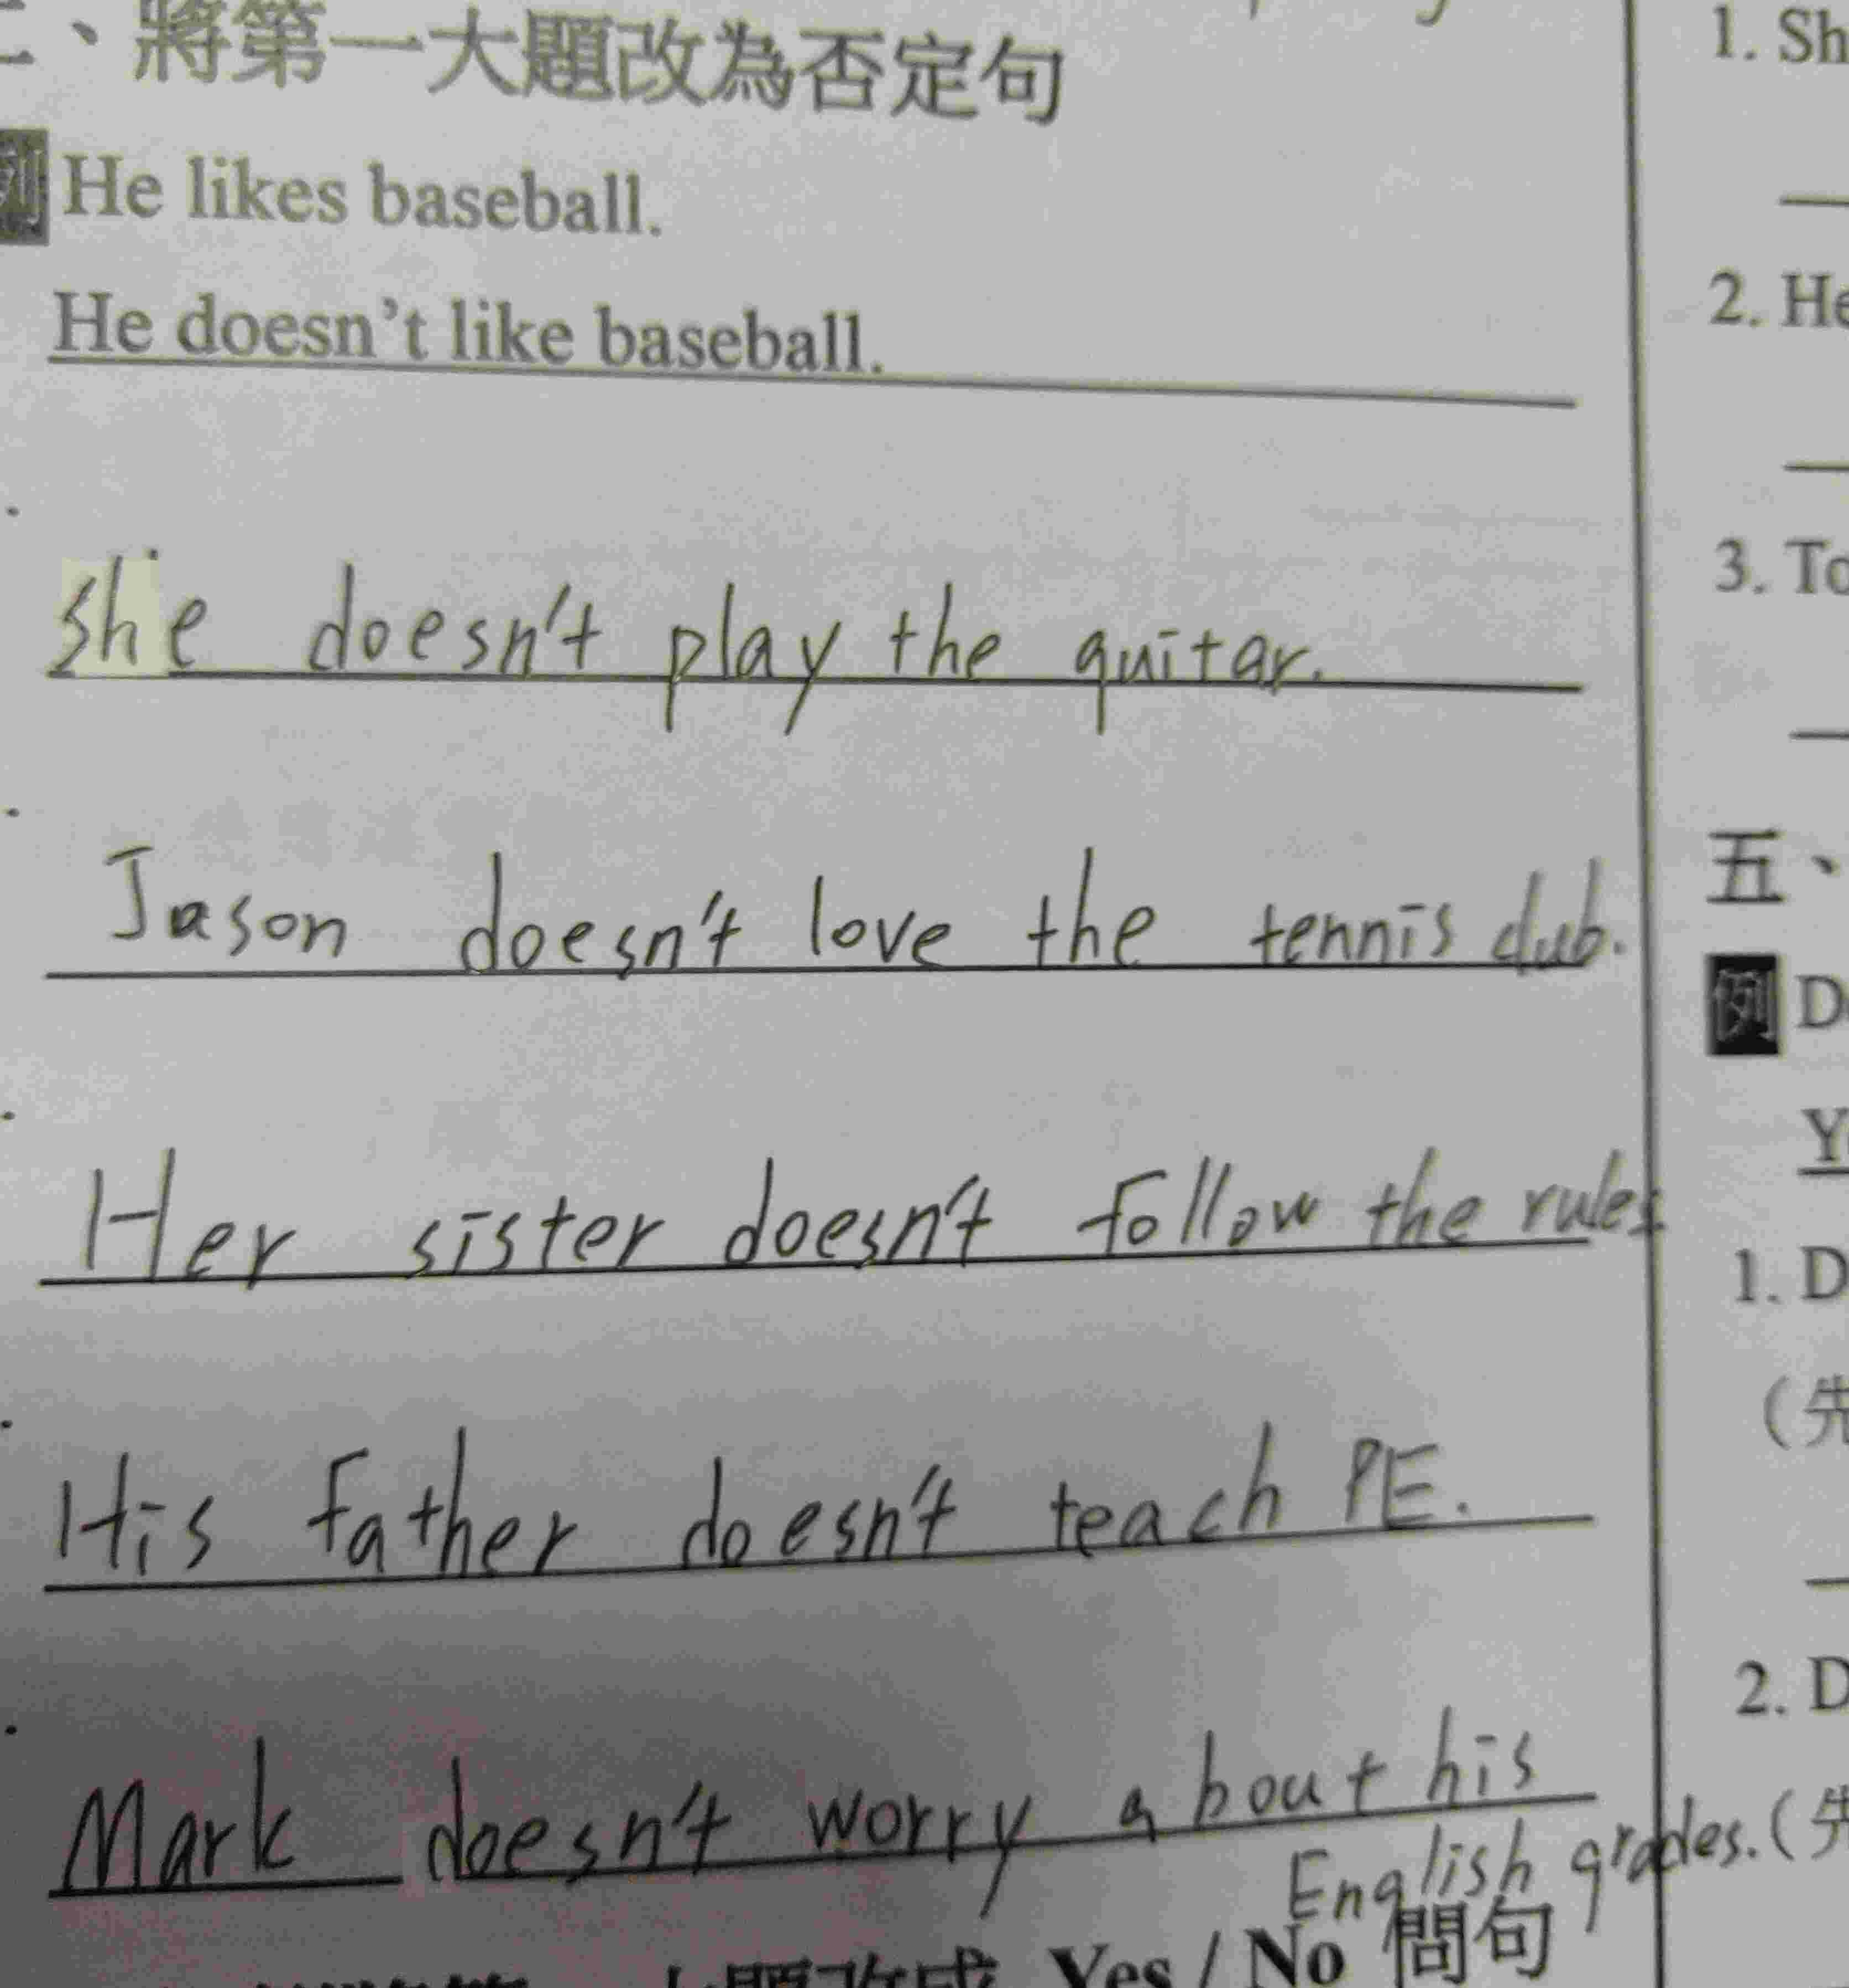 二、將第一大題改為否定句
例 He likes baseball.
He doesn't like baseball.
She doesn't play the guitar.
Jason doesn't love the tennis club.
Her sister doesn't follow the rules
His father doesn't teach PE.
Mark doesn't worry about his
English grades.
Yes / No 問句
1. Sh
2. He
3. To
五、
例 D
Y
1. D
(先
2. D
(先